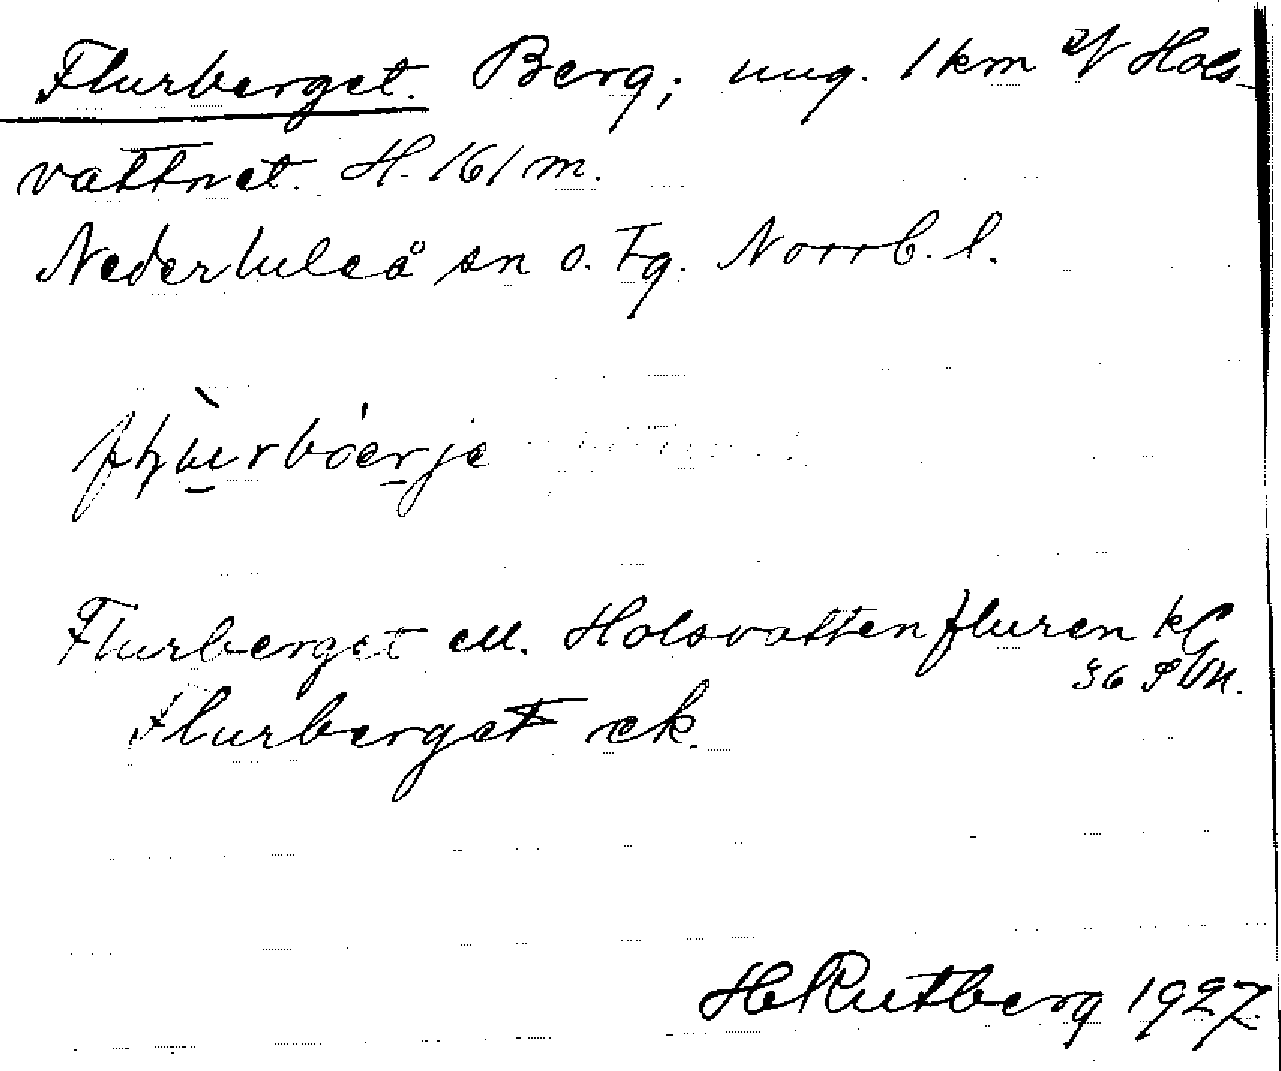 Flurberget. Berg; ung. 1 km Hols-
vattnet. H. 161 m.
Nederluleå sn o. tg. Norrb. l.
Flurberget ell. Holsvattenfluren kl
36 Sbn.
Flurberget ek.
H Rutberg 1927.